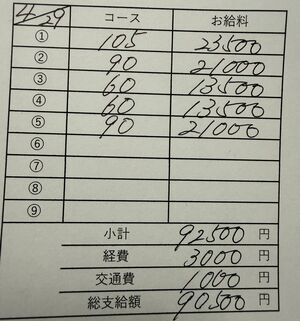 4/29 コース お給料
① 105 23500
② 90 21000
③ 60 13500
④ 60 13500
⑤ 90 21000
⑥
⑦
⑧
⑨
小計 92500 円
経費 3000 円
交通費 1000 円
総支給額 90500 円